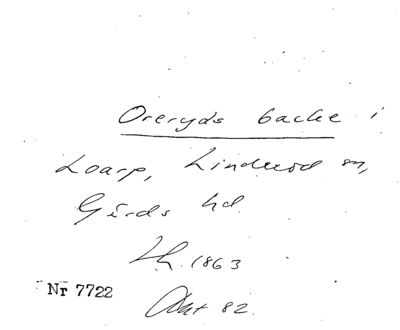 Oreryds backe i
Loarp, Linderöd sn,
Gärds hd
Lh. 1863
Nr 7722
Akt 82.